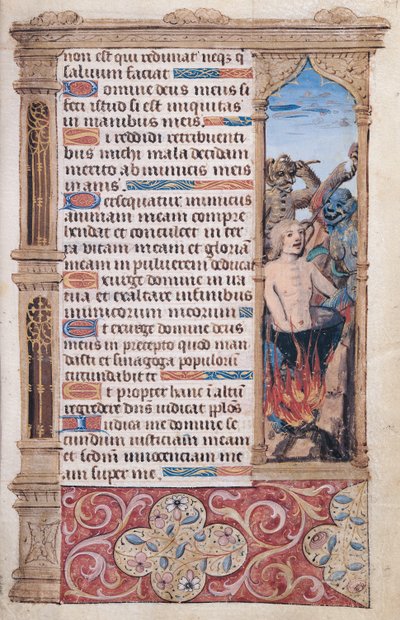 non est qui redimat neq3 q
saluum faciat
Domine deus meus si
feci istud si est iniquitas
in manibus meis
Si reddidi retribuenti
bus michi mala decidam
merito ab inimicis meis
inanis
Persequatur inimicus
animam meam compre
hendat et conculcet in ter
ra vitam meam et gloriā
meam in puluerem deducat
Exurge domine in ira
tua et exaltare in finibus
inimicorum meorum
Et exurge domine deus
meus in precepto quod man
dasti et sinagoga populorū
circundabit te
Et propter hanc i altū
regredere dn̄s iudicat pp̄los
Iudica me domine se
cundum iusticiam meam
et sedm̄ innocenciam me
am super me